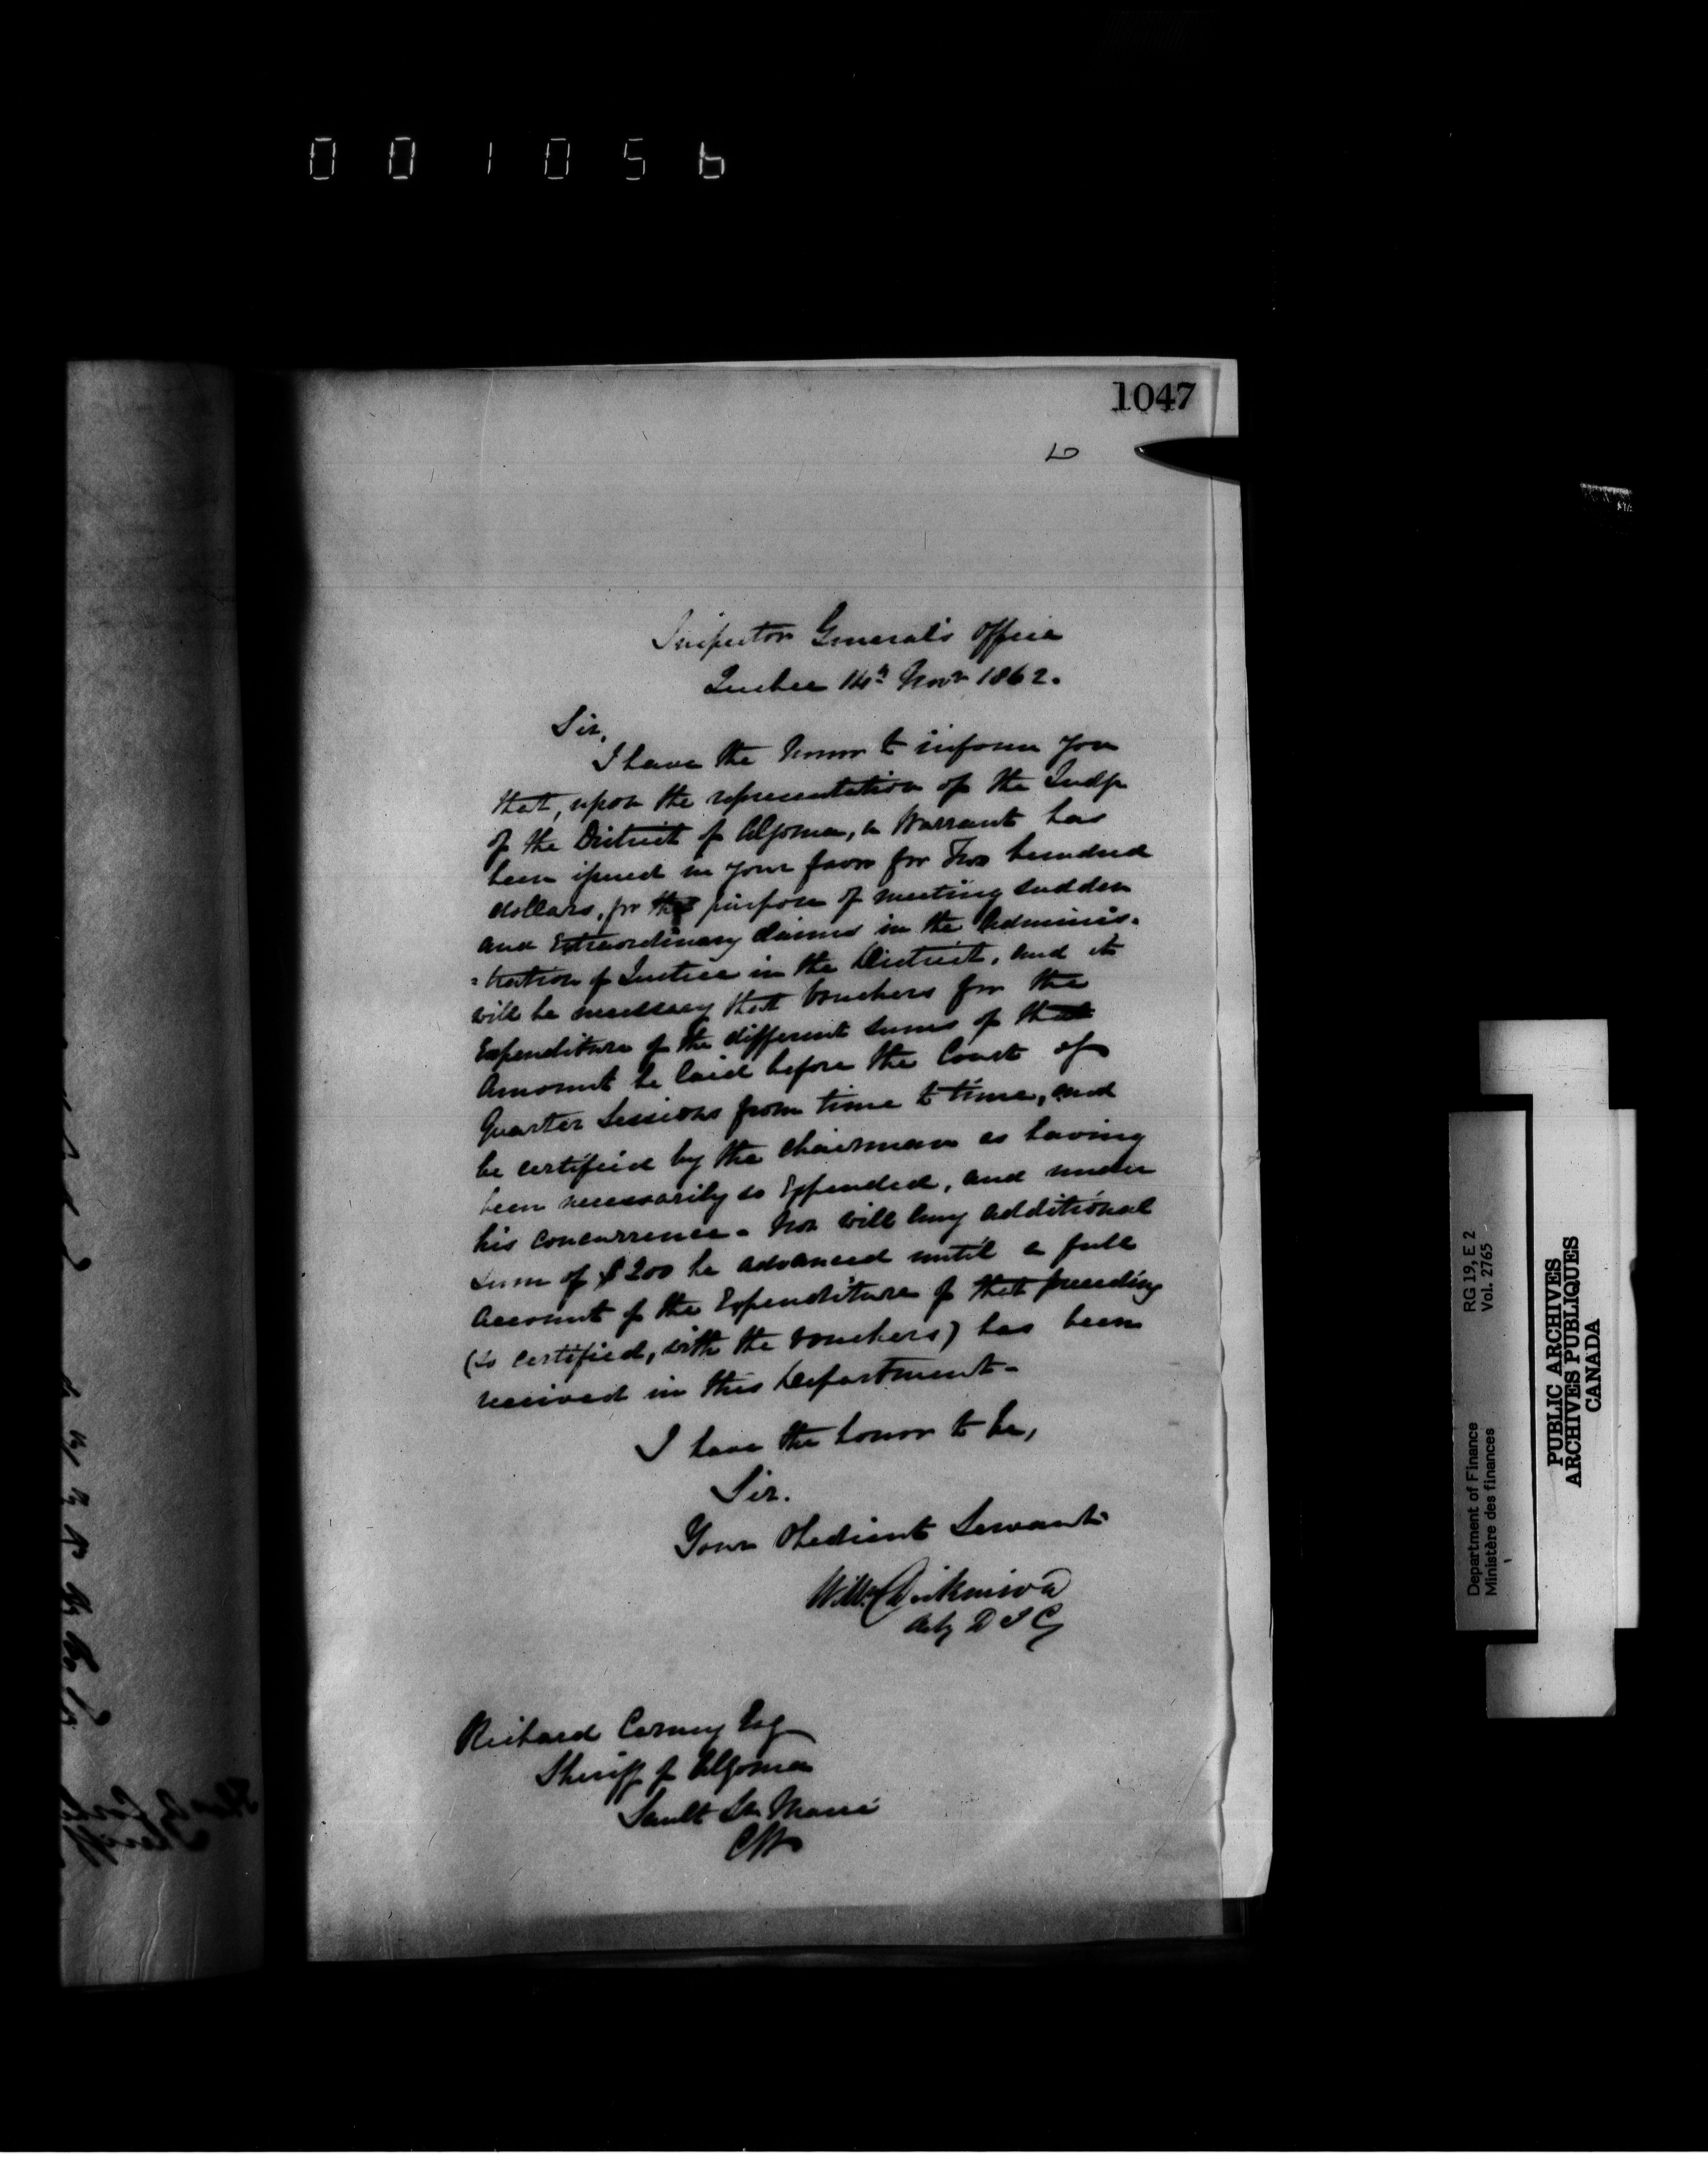 001056
1047
Inspector General's Office
Quebec 14th Novr 1862.
Sir,
I have the honor to inform you
that, upon the representation of the Judge
of the District of Algoma, a Warrant has
been issued in your favor for Two hundred
dollars, for the purpose of meeting sudden
and Extraordinary claims in the Adminis-
=tration of Justice in the District, and it
will be necessary that Vouchers for the
Expenditure of the different sums of that
Amount be laid before the Court of
Quarter Sessions from time to time, and
be certified by the Chairman as having
been necessarily so Expended, and under
his concurrence - Nor will any additional
sum of $200 be advanced until a full
Account of the Expenditure of that preceding
(so certified, with the vouchers) has been
received in this Department -
I have the honor to be,
Sir.
Your Obedient Servant
Wm Dickinson
Actg D I G
Richard Carney Esq
Sheriff of Algoma
Sault Ste Marie
CW
Department of Finance RG 19, E 2
Ministère des finances Vol. 2765
PUBLIC ARCHIVES
ARCHIVES PUBLIQUES
CANADA